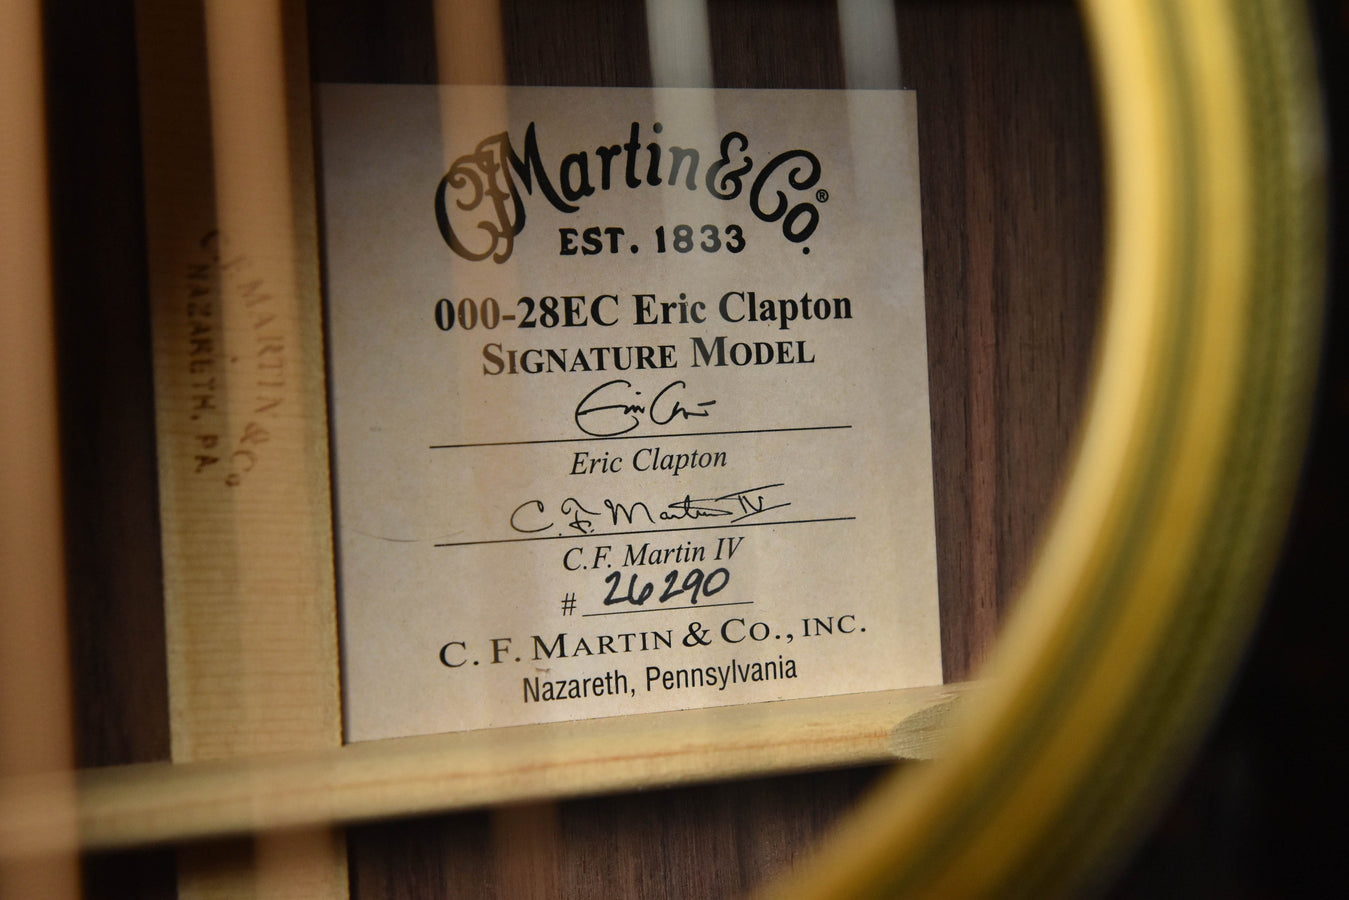 C.F. Martin & Co.®
EST. 1833
000-28EC Eric Clapton
SIGNATURE MODEL
Eric Clapton
C. F. Martin IV
C.F. Martin IV
# 26290
C. F. MARTIN & CO., INC.
Nazareth, Pennsylvania
C.F. MARTIN & Co.
NAZARETH, PA.